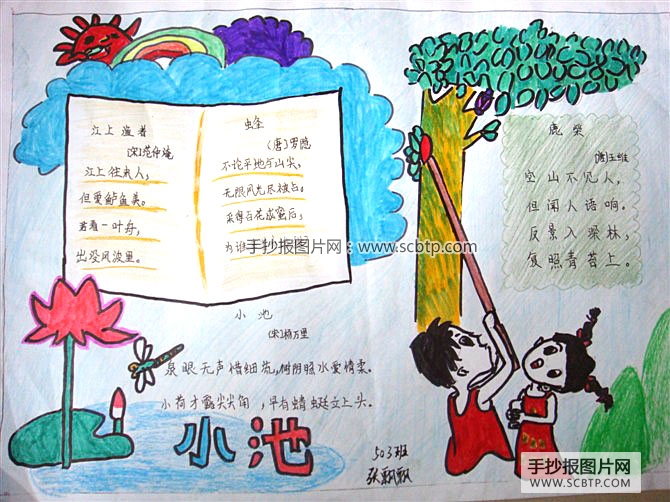 江上渔者
(宋)范仲淹
江上往来人，
但爱鲈鱼美。
君看一叶舟，
出没风波里。
蜂
(唐)罗隐
不论平地与山尖，
无限风光尽被占。
采得百花成蜜后，
为谁
手抄报图片网：www.scbtp.com
鹿柴
(唐)王维
空山不见人，
但闻人语响。
反景入深林，
复照青苔上。
小池
(宋)杨万里
泉眼无声惜细流，树阴照水爱情柔。
小荷才露尖尖角，早有蜻蜓立上头。
小池
503班
张飘飘
手抄报图片网
WWW.SCBTP.COM